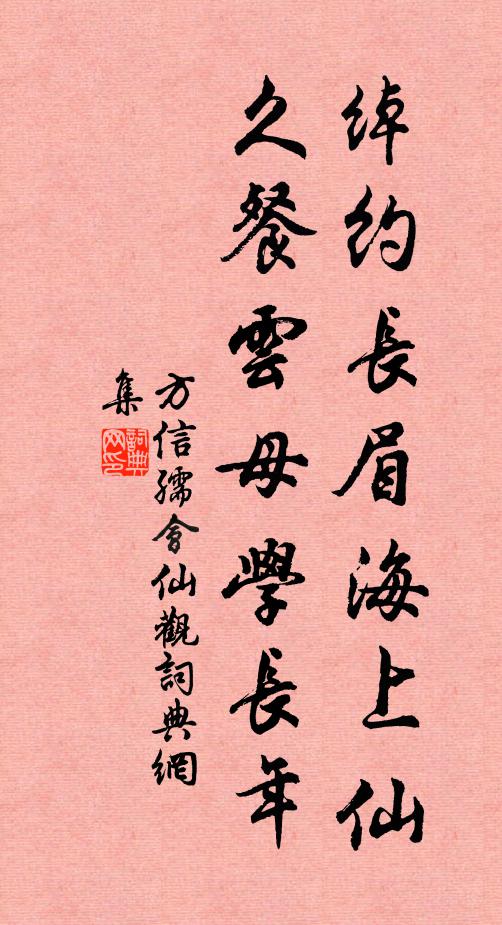 綽約長眉海上仙
久餐雲母學長年
方信孺會仙觀詞典網
集
詞典網印